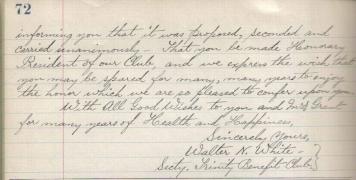 72
informing you that it was proposed, seconded and
carried unanimously - That you be made Honorary
President of our Club, and we express the wish that
you may be spared for many, many years to enjoy
the honor which we are so pleased to confer upon you.
With All Good Wishes to you and Mrs Grant
for many years of Health and Happiness,
Sincerely Yours,
Walter N. White -
Secty. Trinity Benefit Club.